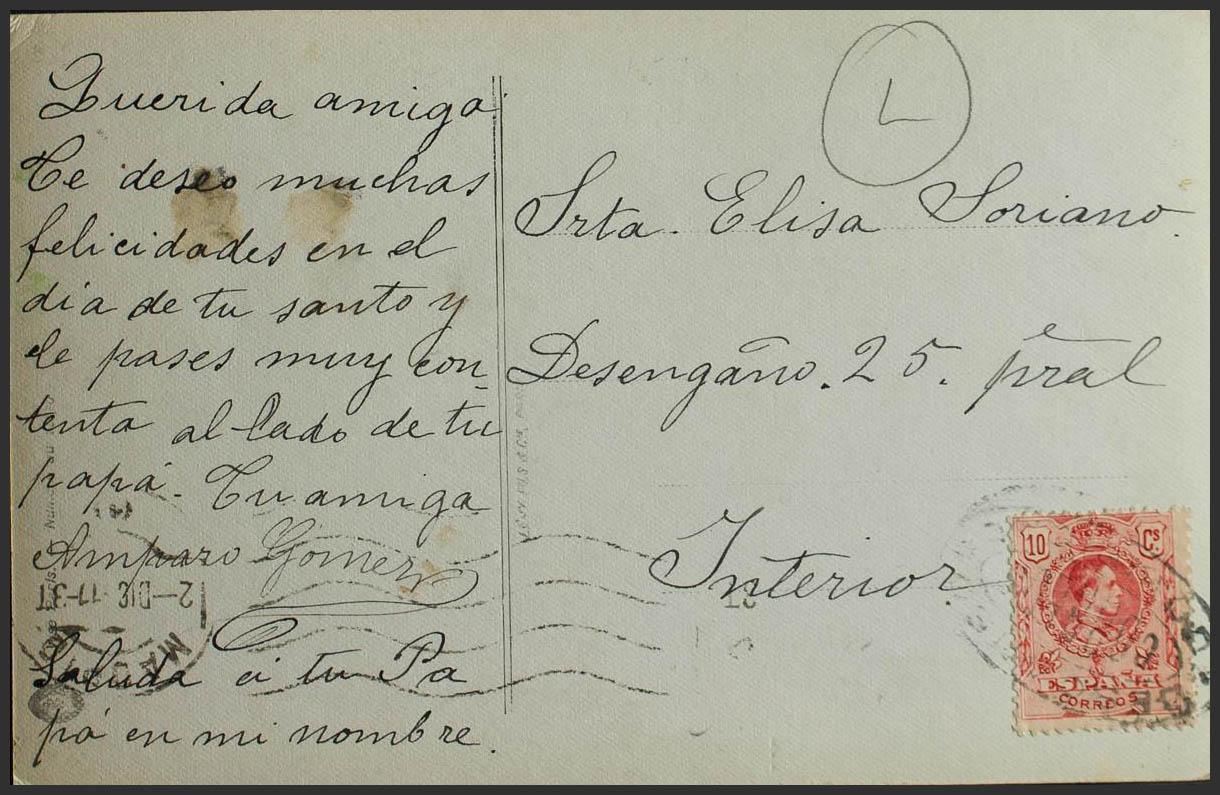 Querida amiga.
Te deseo muchas
felicidades en el
día de tu santo y
le pases muy con-
tenta al lado de tu
papá. Tu amiga
Amparo Gomez
Saluda a tu Pa
pá en mi nombre.
L
Srta. Elisa Soriano.
Desengaño. 25. pral
Interior
10 Cs
ESPAÑA
CORREOS
2-DIC 11-3T
MAD